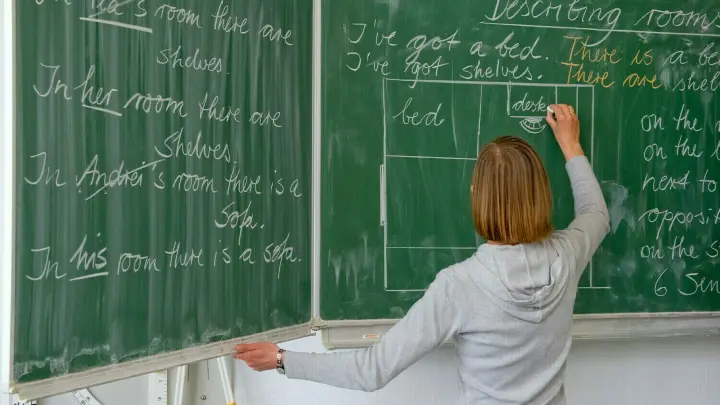 room there are
shelves.
In her room there are
Shelves.
In Andrei's room there is a
Sofa.
In his room there is a sofa.
Describing room
I've got a bed. There is a be
I've got shelves. There are shel
bed
desk
on the r
on the l
next to
opposit
on the s
6 Sen